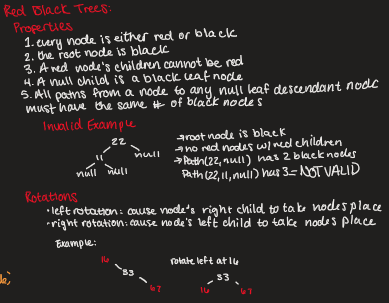 Red Black Trees:
Properties
1. every node is either red or black
2. the root node is black
3. A red node's children cannot be red
4. A null child is a black leaf node
5. All paths from a node to any null leaf descendant node
must have the same # of black nodes
Invalid Example
22
11
null
null null
→root node is black
→no red nodes w/ red children
→Path(22,null) has 2 black nodes
Path(22,11,null) has 3=NOT VALID
Rotations
•left rotation: cause node's right child to take nodes place
•right rotation: cause node's left child to take nodes place
Example:
16
33
67
rotate left at 16
33
16 67